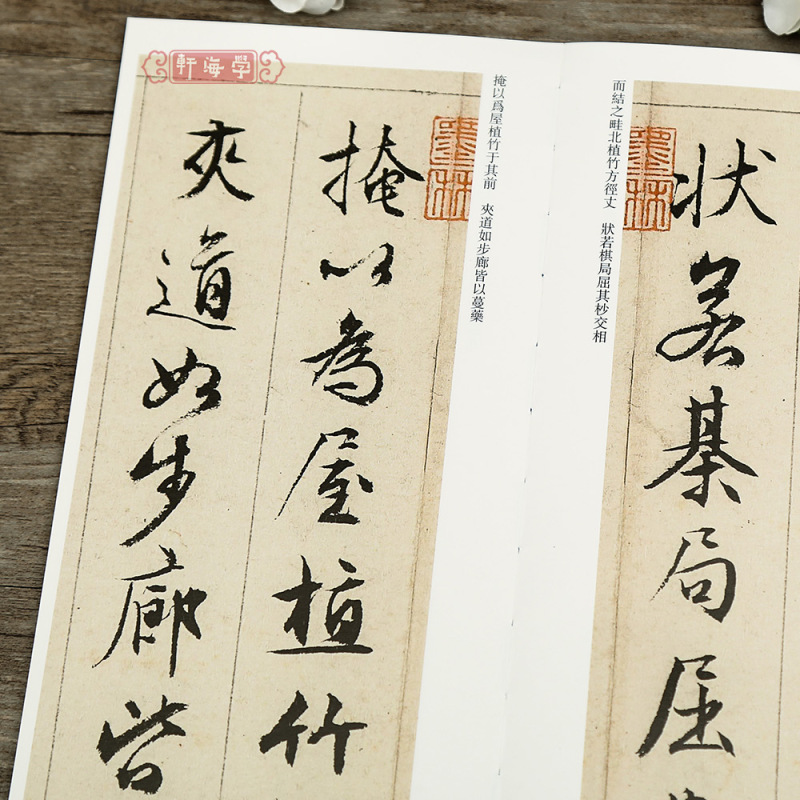 軒海學
狀若棊局屈
面結之畦北植竹方徑丈　狀若棋局屈其杪交相
墨林
掩以爲屋植竹于其前　夾道如步廊皆以蔓藥
墨林
掩以為屋植竹
夾道如步廊皆